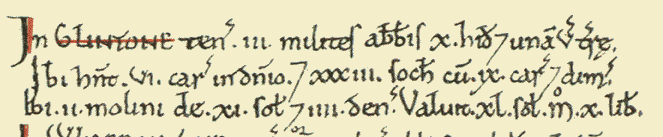 In GLINTONE ten͛. iii. milites abb̄is x. hid̄ ⁊ unā v͛ trę͛.
Ibi hn̄t. vi. car͛ in dn̄io. ⁊ xxxiii. soch̄ cū. ix. car͛ ⁊ dim͛.
Ibi. ii. molini de. xi. sol̄ ⁊ iiii. den͛. Valuit. xl. sol̄. m̊. x. lib̄.